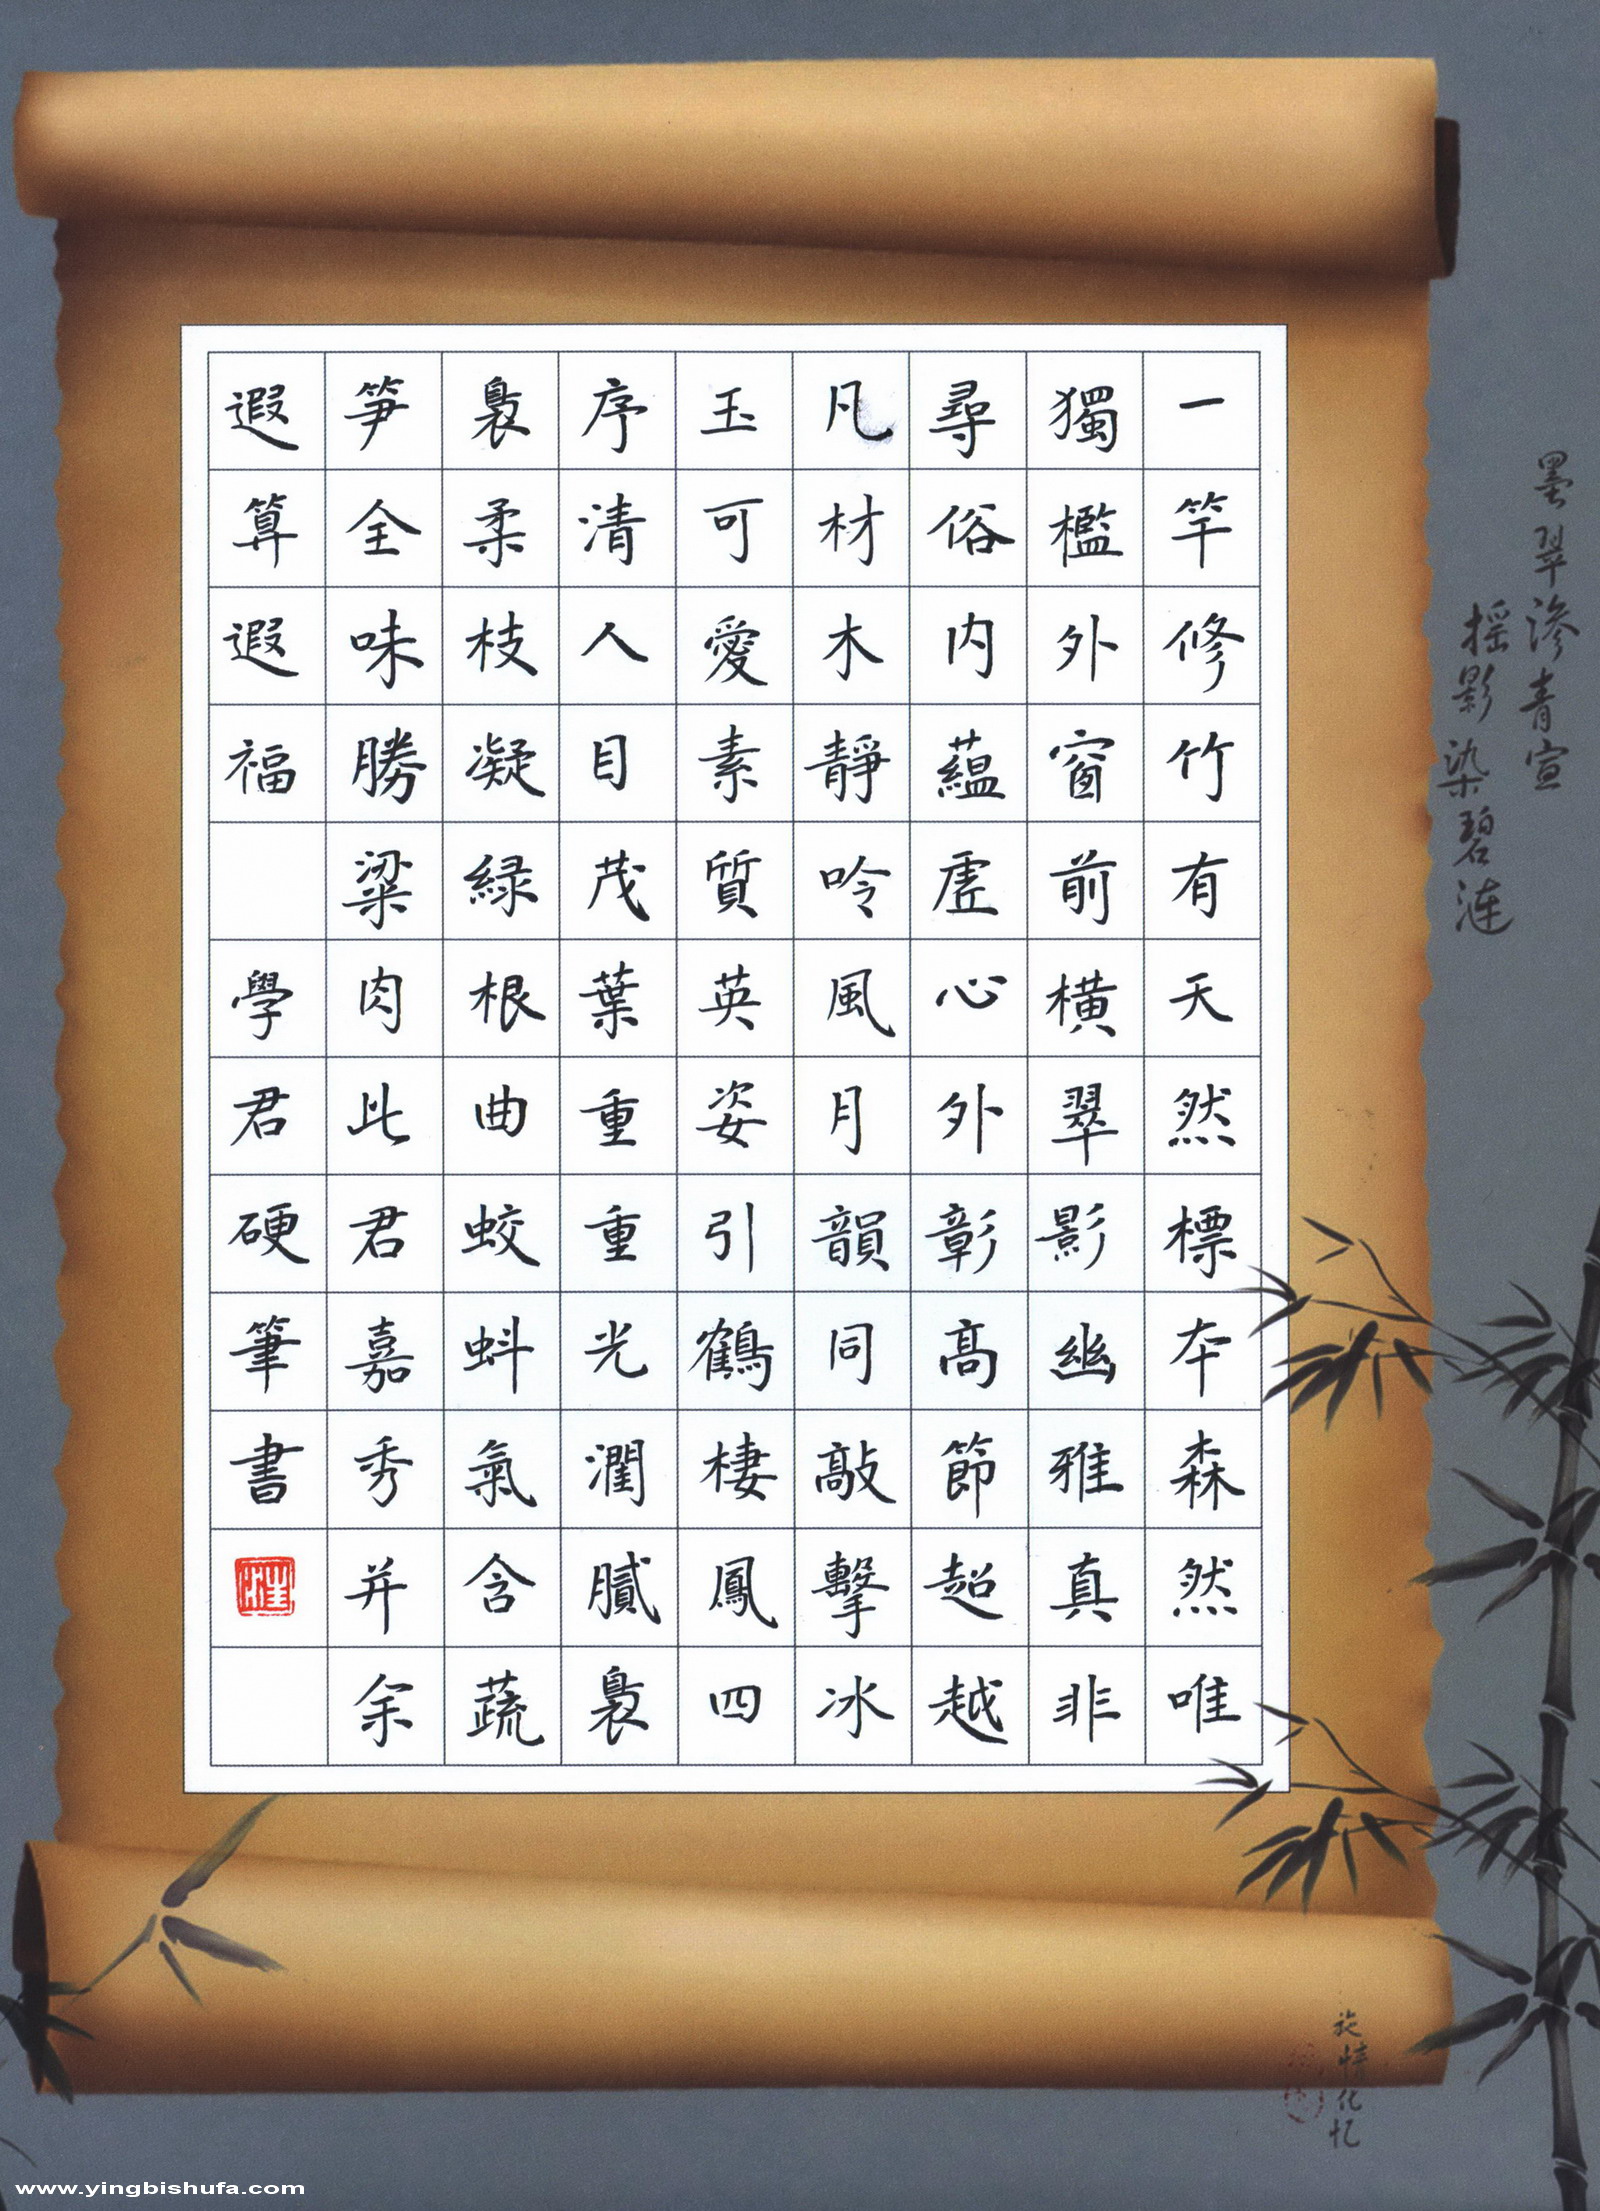 墨翠渗青宣
摇影染碧涟
一竿修竹有天然標本森然唯
獨檻外窗前橫翠影幽雅真非
尋俗内蘊虛心外彰高節超越
凡材木靜吟風月韻同敲擊冰
玉可愛素質英姿引鶴棲鳳四
序清人目茂葉重重光潤膩裊
裊柔枝凝緑根曲蛟蚪氣含蔬
笋全味勝粱肉此君嘉秀并余
遐算遐福
學君硬筆書
www.yingbishufa.com